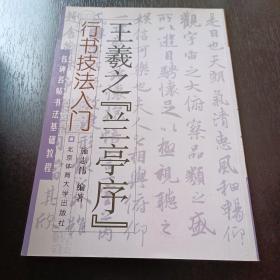 是日也天朗氣清惠風和暢仰
觀宇宙之大俯察品類之盛
所以遊目騁懷足以極視聽之
娛信可樂也夫人之相與俯仰
王羲之『兰亭序』
行书技法入门
编著
北京体育大学出版社
名碑名帖书法基础教程